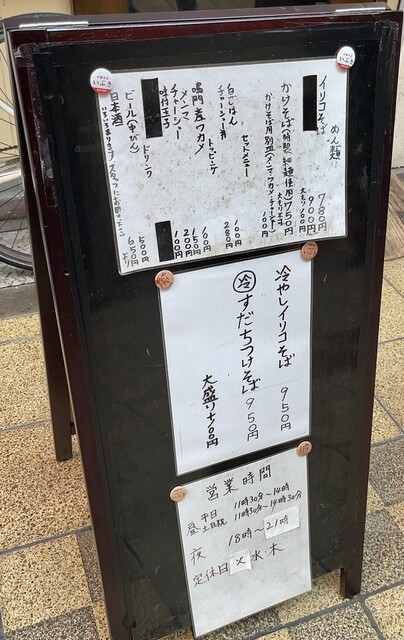 めん類
イリコそば 780円
900円
大もり100円
かけそば(特製細麺使用)750円
大もり100円
かけそば用別皿(メンマ、ワカメ、チャーシュー) 100円
セットメニュー
白ごはん 100円
チャーシュー丼 280円
トッピング
鳴門産ワカメ 100円
メンマ 150円
チャーシュー 200円
味付玉子 100円
ドリンク
ビール(中びん) 500円
日本酒 650円より
冷やしイリコそば 950円
冷 すだちつけそば 950円
大盛り+100円
営業時間
昼 平日 11時30分~14時
土日祝 11時30分~14時30分
夜 18時~21時
定休日 火 水・木